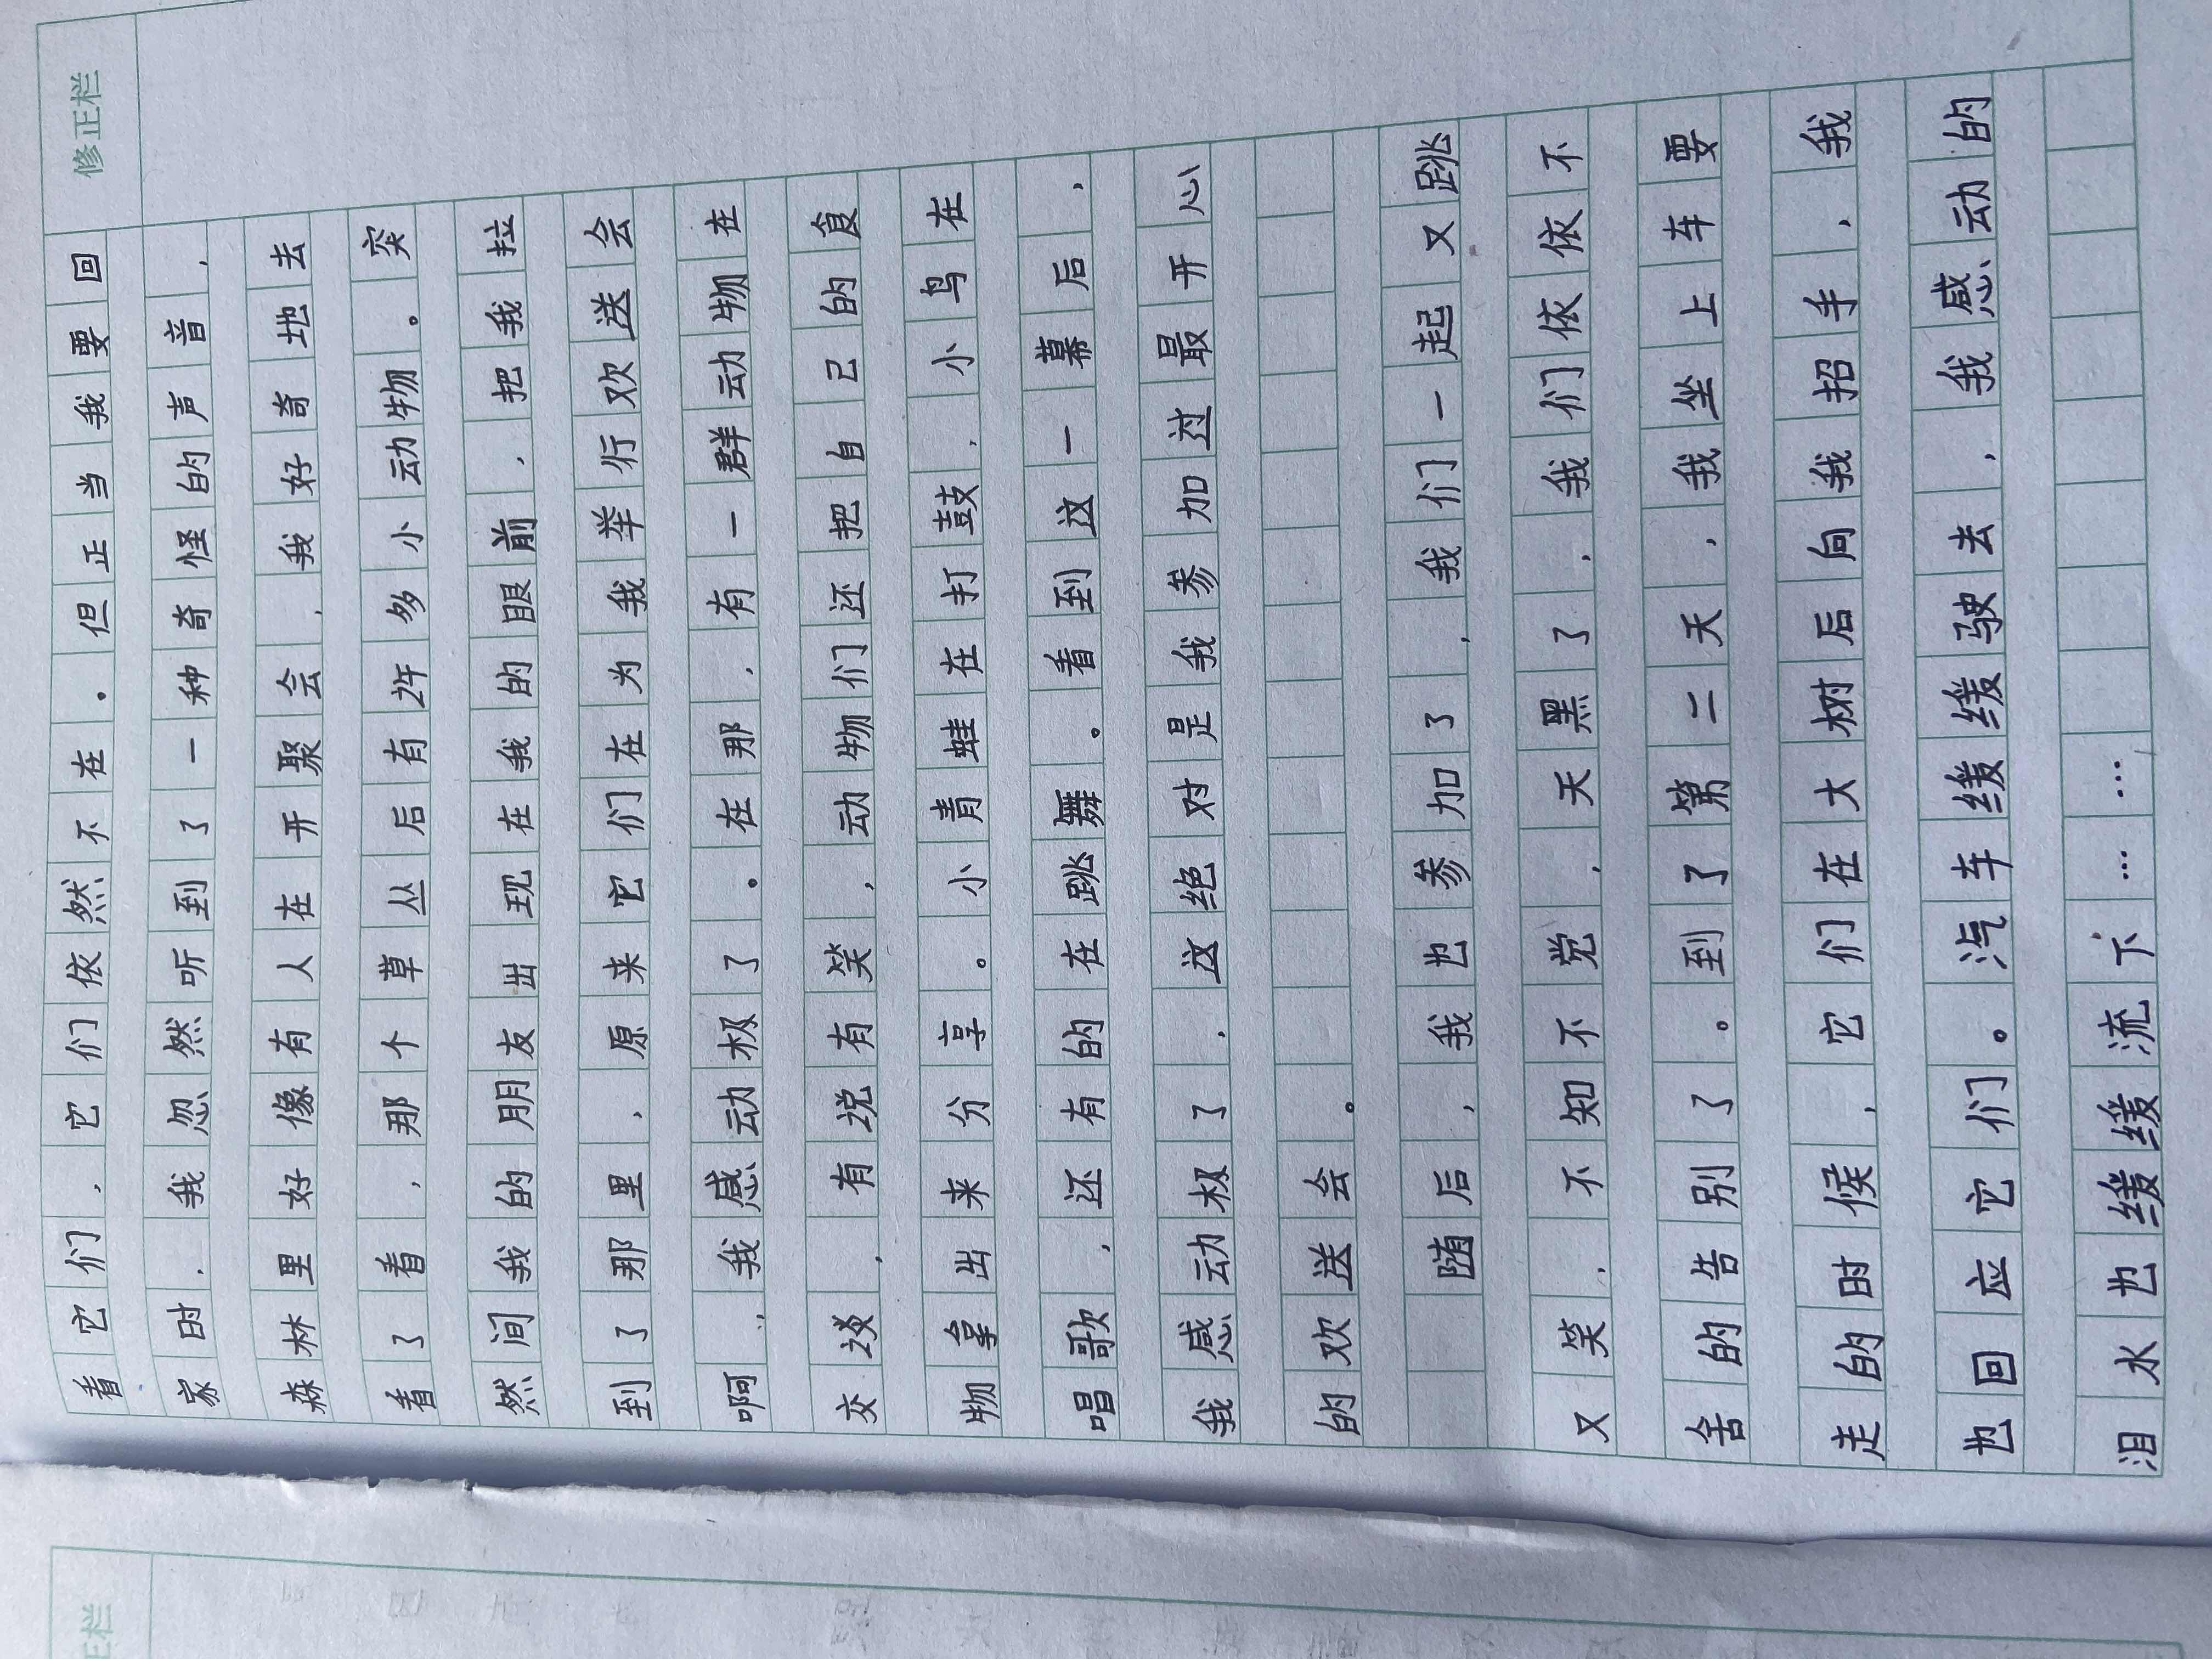 修正栏
看它们，它们依然不在。但正当我要回
家时，我忽然听到了一种奇怪的声音，
森林里好像有人在开聚会，我好奇地去
看了看，那个草丛后有许多小动物。突
然间我的朋友出现在我的眼前，把我拉
到了那里，原来它们在为我举行欢送会
啊，我感动极了。在那，有一群动物在
交谈，有说有笑，动物们还把自己的食
物拿出来分享。小青蛙在打鼓，小鸟在
唱歌，还有的在跳舞。看到这一幕后，
我感动极了，这绝对是我参加过最开心
的欢送会。
随后，我也参加了，我们一起又跳
又笑，不知不觉，天黑了，我们依依不
舍的告别了。到了第二天，我坐上车要
走的时候，它们在大树后向我招手，我
也回应它们。汽车缓缓驶去，我感动的
泪水也缓缓流下……
正栏